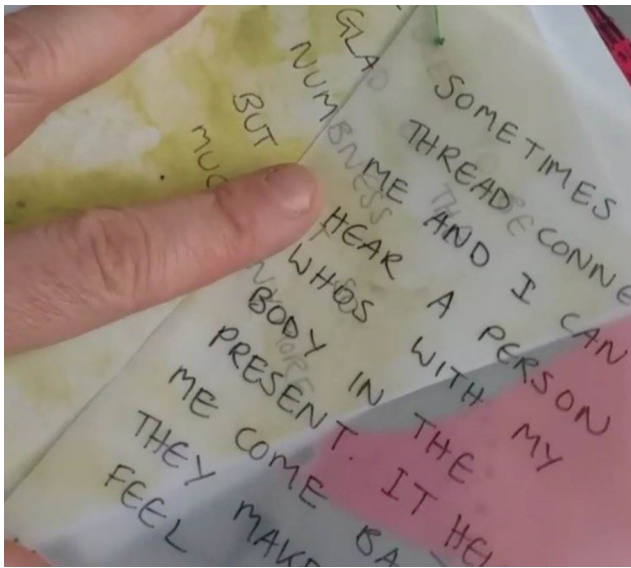 GLAD
NUMBNESS
BUT
MUC
SOMETIMES
THREAD CONNE
ME AND I CAN
HEAR A PERSON
WHOS WITH MY
BODY IN THE
PRESENT. IT HEL
ME COME BA
THEY MAKE
FEEL